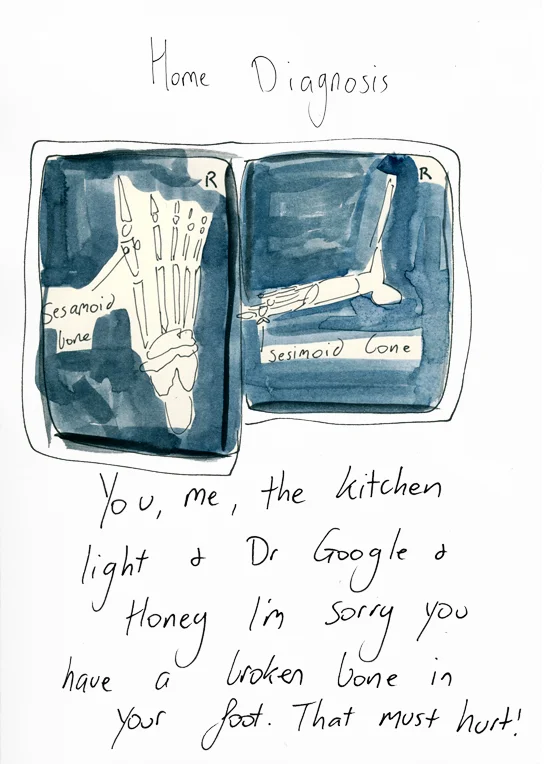 Home Diagnosis
R
R
Sesamoid
bone
sesimoid bone
You, me, the kitchen
light & Dr Google &
Honey I'm sorry you
have a broken bone in
your foot. That must hurt!